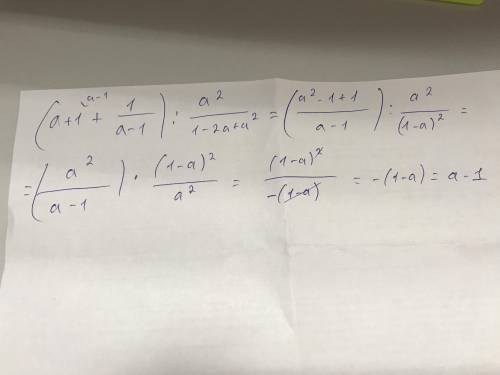 (a+1^{a-1} + \frac{1}{a-1}) : \frac{a^2}{1-2a+a^2} = (\frac{a^2-1+1}{a-1}) : \frac{a^2}{(1-a)^2} =
= (\frac{a^2}{a-1}) \cdot \frac{(1-a)^2}{a^2} = \frac{(1-a)^2}{-(1-a)} = -(1-a) = a-1